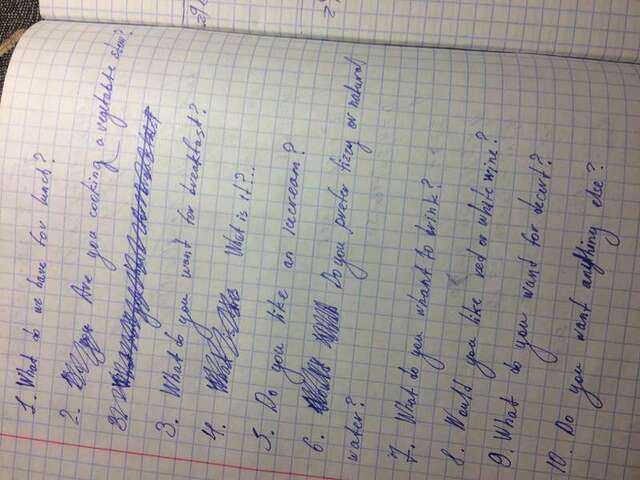 1. What do we have for lunch?
2. Are you cooking a vegetable stew?
3. What do you want for breakfast?
4. What is it?...
5. Do you like an icecream?
6. Do you prefer fizzy or natural
water?
7. What do you whant to drink?
8. Would you like red or white wine?
9. What do you want for decert?
10. Do you want anything else?